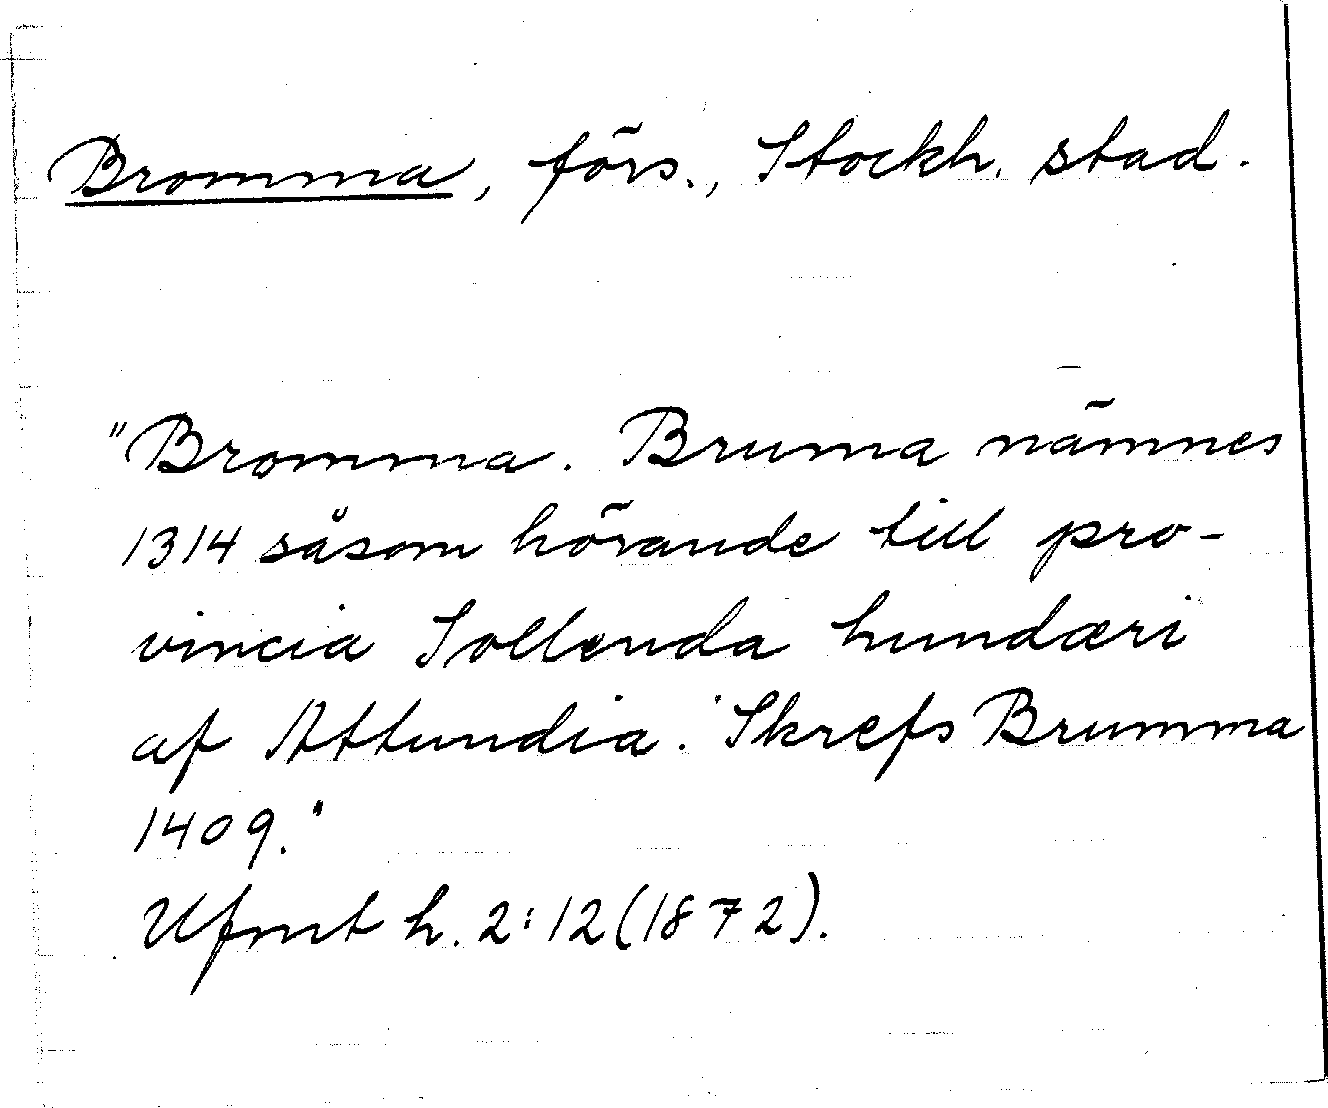 Bromma, förs., Stockh. stad.
"Bromma. Bruma nämnes
1314 såsom hörande till pro-
vincia Sollenda hundæri
af Attundia. Skrefs Brumma
1409."
Ufmt h. 2:12 (1872).